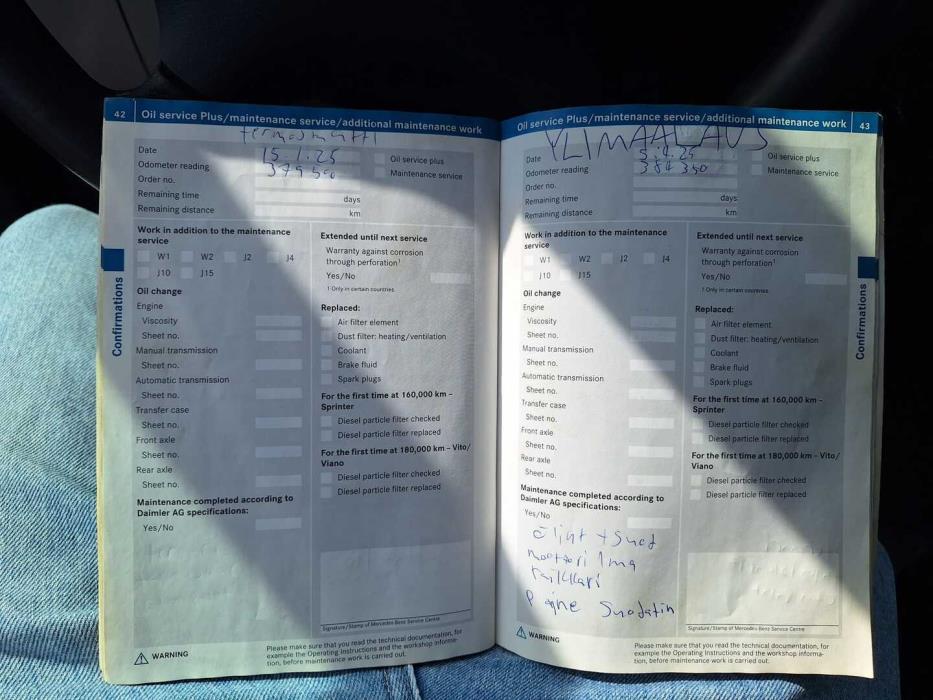 42 Oil service Plus/maintenance service/additional maintenance work
termosmatti
Date 15.1.25
Odometer reading 379590
Oil service plus
Maintenance service
Order no.
Remaining time days
Remaining distance km
Work in addition to the maintenance
service
W1 W2 J2 J4
J10 J15
Oil change
Engine
Viscosity
Sheet no.
Manual transmission
Sheet no.
Automatic transmission
Sheet no.
Transfer case
Sheet no.
Front axle
Sheet no.
Rear axle
Sheet no.
Maintenance completed according to
Daimler AG specifications:
Yes/No
Extended until next service
Warranty against corrosion
through perforation¹
Yes/No
1 Only in certain countries.
Replaced:
Air filter element
Dust filter: heating/ventilation
Coolant
Brake fluid
Spark plugs
For the first time at 160,000 km –
Sprinter
Diesel particle filter checked
Diesel particle filter replaced
For the first time at 180,000 km – Vito/
Viano
Diesel particle filter checked
Diesel particle filter replaced
Signature/Stamp of Mercedes-Benz Service Centre
WARNING
Please make sure that you read the technical documentation, for
example the Operating Instructions and the workshop informa-
tion, before maintenance work is carried out.
Confirmations
Oil service Plus/maintenance service/additional maintenance work 43
YLIMAALAUS
Date 5.4.25
Odometer reading 384350
Oil service plus
Maintenance service
Order no.
Remaining time days
Remaining distance km
Work in addition to the maintenance
service
W1 W2 J2 J4
J10 J15
Oil change
Engine
Viscosity
Sheet no.
Manual transmission
Sheet no.
Automatic transmission
Sheet no.
Transfer case
Sheet no.
Front axle
Sheet no.
Rear axle
Sheet no.
Maintenance completed according to
Daimler AG specifications:
Yes/No
öljyt + suod
moottori ilma
raitis
paine Suodatin
Extended until next service
Warranty against corrosion
through perforation¹
Yes/No
1 Only in certain countries.
Replaced:
Air filter element
Dust filter: heating/ventilation
Coolant
Brake fluid
Spark plugs
For the first time at 160,000 km –
Sprinter
Diesel particle filter checked
Diesel particle filter replaced
For the first time at 180,000 km – Vito/
Viano
Diesel particle filter checked
Diesel particle filter replaced
Signature/Stamp of Mercedes-Benz Service Centre
WARNING
Please make sure that you read the technical documentation, for
example the Operating Instructions and the workshop informa-
tion, before maintenance work is carried out.
Confirmations